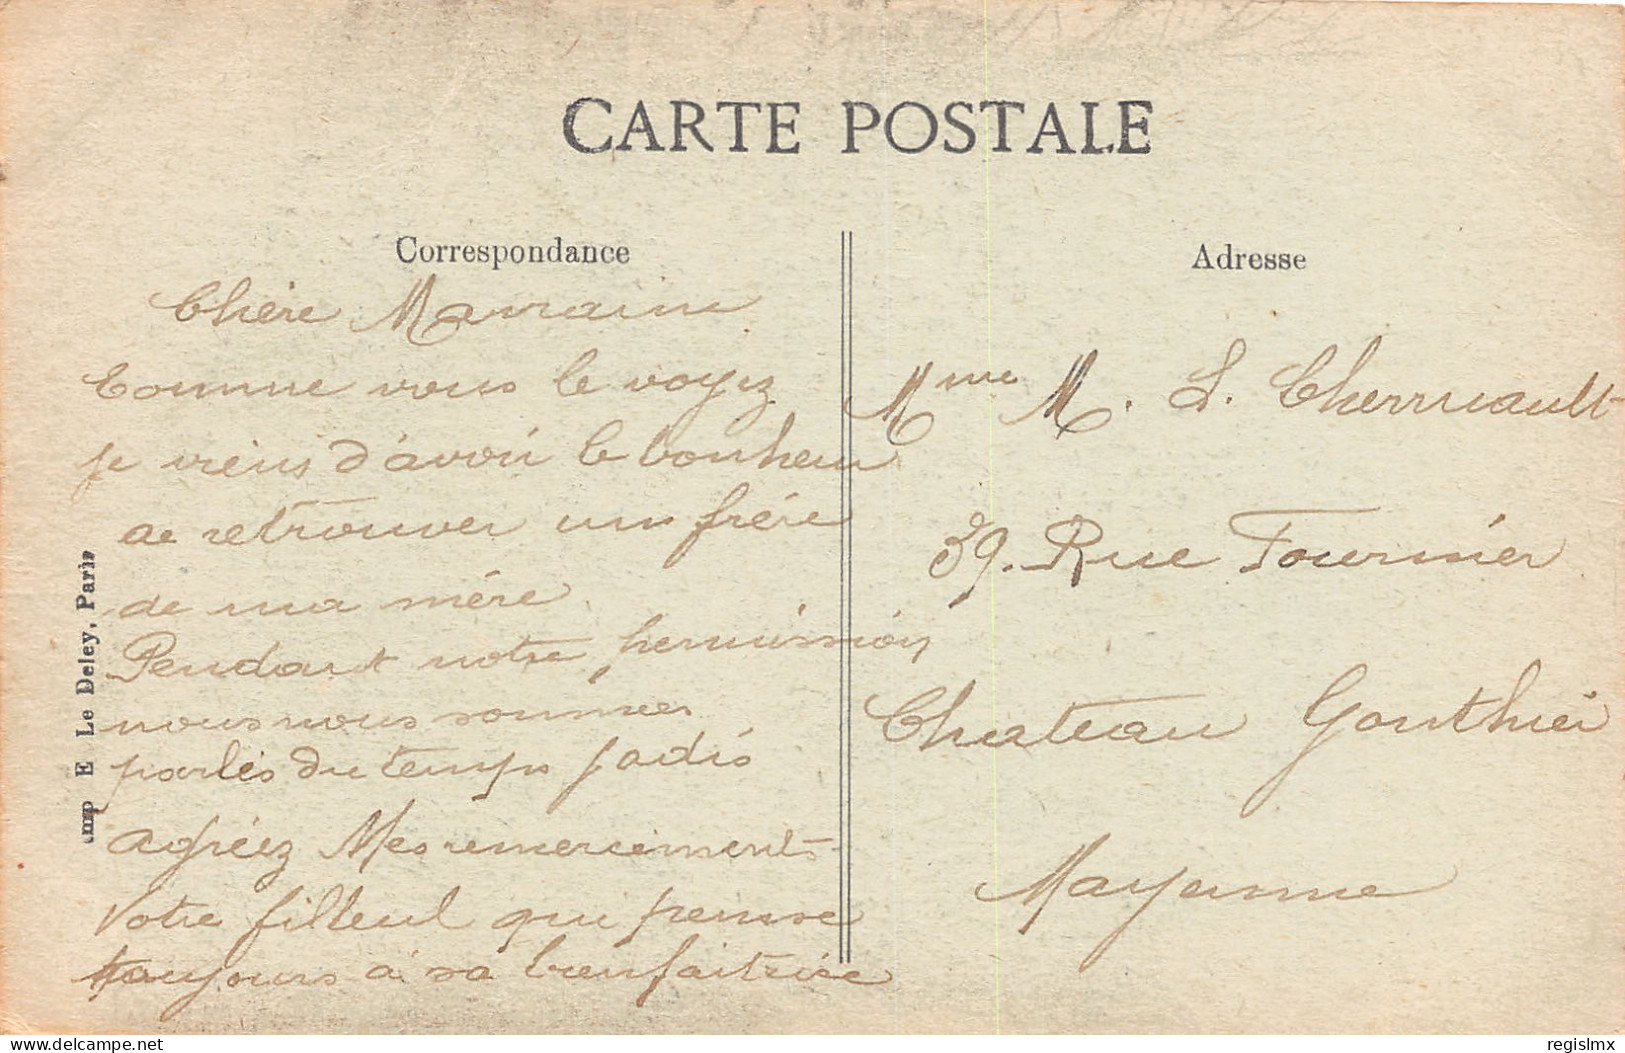 CARTE POSTALE
Correspondance
Chère Marraine
Comme vous le voyez
je viens d'avoir le bonheur
de retrouver un frère
de ma mère
Pendant notre permission
nous nous sommes
parlés du temps jadis
agréez Mes remerciements
Votre filleul qui pense
toujours à sa bienfaitrice
Adresse
Mme M. L. Cherruault
39. Rue Fournier
Chateau Gonthier
Mayenne
Imp E Le Deley, Paris
delcampe.net
regislmx